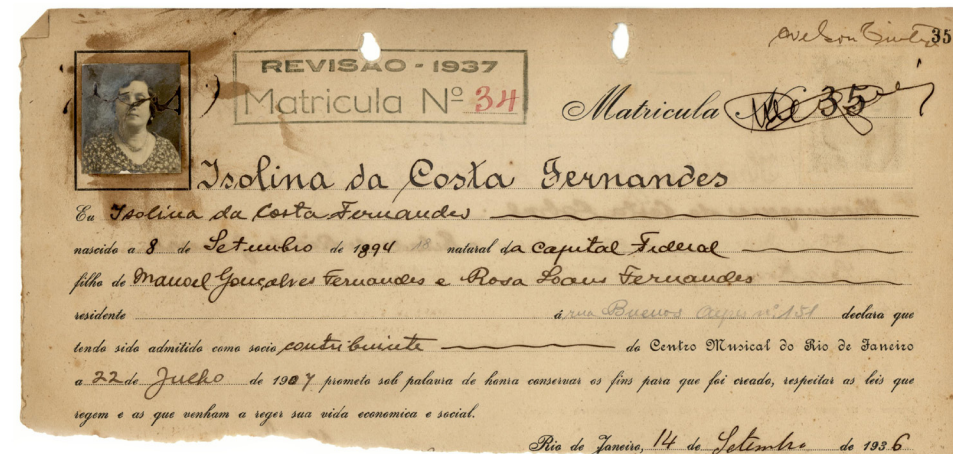 35
REVISÃO - 1937
Matricula Nº 34
Matricula 35
Isolina da Costa Fernandes
Eu Isolina da Costa Fernandes
nascido a 8 de Setembro de 1894 natural da Capital Federal
filho de Manoel Gonçalves Fernandes e Rosa Fernandes
residente á rua Buenos Ayres nº 151 declara que
tendo sido admitido como socio contribuinte do Centro Musical do Rio de Janeiro
a 22 de Julho de 1907 prometo sob palavra de honra conservar os fins para que foi creado, respeitar as leis que
regem e as que venham a reger sua vida economica e social.
Rio de Janeiro, 14 de Setembro de 1936